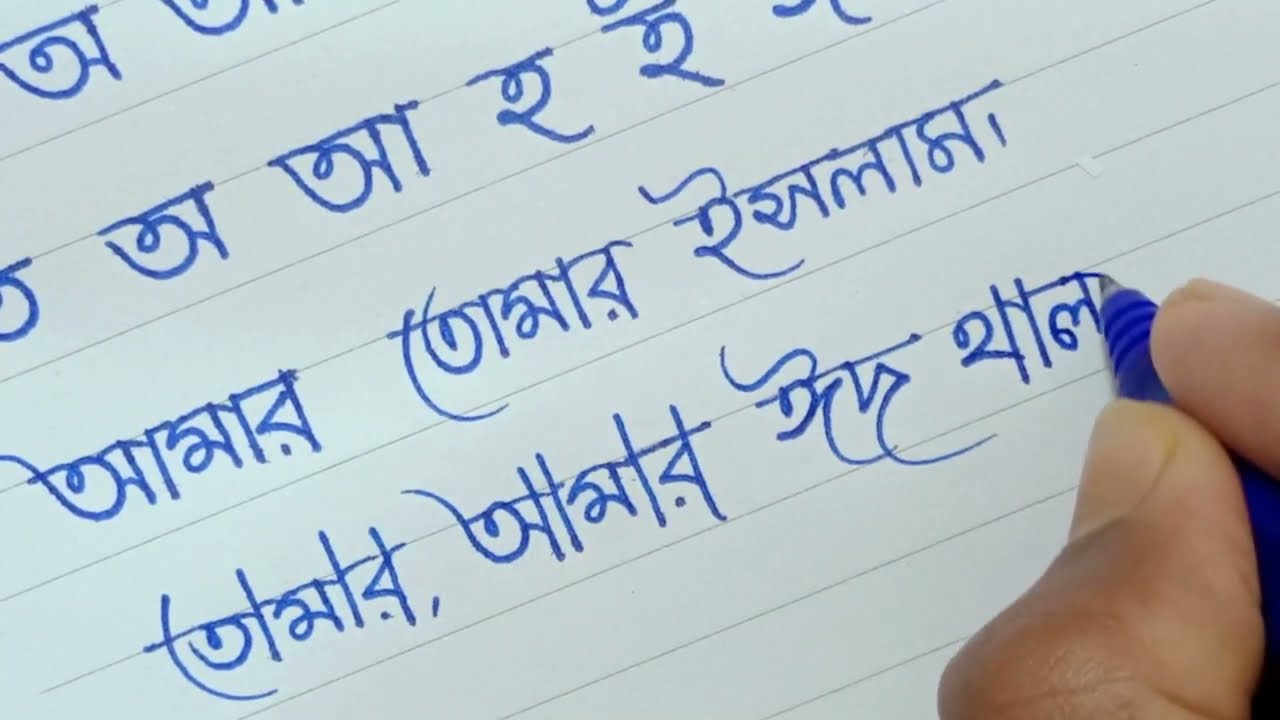 অ আ
ত অ আ হ ই
আমার তোমার ইসলাম।
তোমার, আমার ঈদ খাল